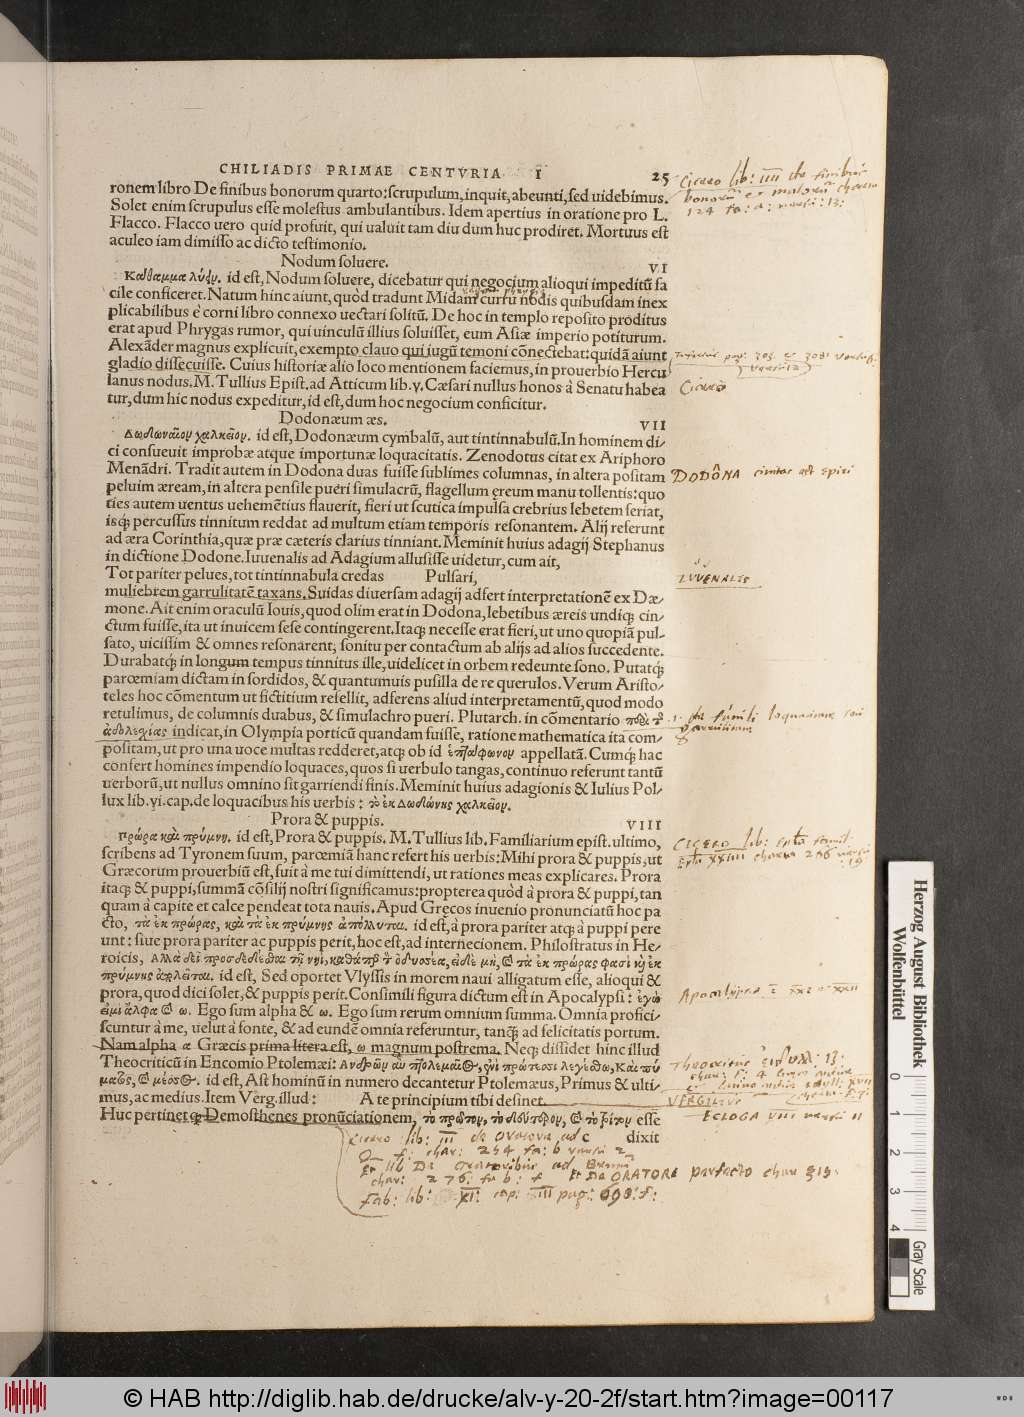 CHILIADIS PRIMAE CENTVRIA I 25
ronem libro De finibus bonorum quarto: scrupulum, inquit, abeunti, sed uidebimus.
Solet enim scrupulus esse molestus ambulantibus. Idem apertius in oratione pro L.
Flacco. Flacco uero quid profuit, qui ualuit tam diu dum huc prodiret. Mortuus est
aculeo iam dimisso ac dicto testimonio.
Nodum soluere. VI
Καθαμμα λύειν. id est, Nodum soluere, dicebatur qui negocium alioqui impeditũ fa
cile conficeret. Natum hinc aiunt, quòd tradunt Midam cursu nodis quibusdam inex
plicabilibus è corni libro connexo uectari solitũ. De hoc in templo reposito proditus
erat apud Phrygas rumor, qui uinculũ illius soluisset, eum Asiæ imperio potiturum.
Alexãder magnus explicuit, exempto clauo qui iugũ temoni cõnectebat: quidã aiunt
gladio dissecuisse. Cuius historiæ alio loco mentionem faciemus, in prouerbio Hercu
lanus nodus. M. Tullius Epist. ad Atticum lib. y. Cæsari nullus honos à Senatu habea
tur, dum hic nodus expeditur, id est, dum hoc negocium conficitur.
Dodonæum æs. VII
Δωδωναῖον χαλκεῖον. id est, Dodonæum cymbalũ, aut tintinnabulũ. In hominem di-
ci consueuit improbæ atque importunæ loquacitatis. Zenodotus citat ex Ariphoro
Menãdri. Tradit autem in Dodona duas fuisse sublimes columnas, in altera positam
peluim æream, in altera pensile pueri simulacrũ, flagellum ęreum manu tollentis: quo
ties autem uentus uehemẽtius flauerit, fieri ut scutica impulsa crebrius lebetem feriat,
isq; percussus tinnitum reddat ad multum etiam temporis resonantem. Alij referunt
ad æra Corinthia, quæ præ cæteris clarius tinniant. Meminit huius adagij Stephanus
in dictione Dodone. Iuuenalis ad Adagium allusisse uidetur, cum ait,
Tot pariter pelues, tot tintinnabula credas Pulsari,
muliebrem garrulitatẽ taxans. Suidas diuersam adagij adfert interpretationẽ ex Dæ-
mone. Ait enim oraculũ Iouis, quod olim erat in Dodona, lebetibus æreis undiq; cin-
ctum fuisse, ita ut inuicem sese contingerent. Itaq; necesse erat fieri, ut uno quopiã pul-
sato, uicissim & omnes resonarent, sonitu per contactum ab alijs ad alios succedente.
Durabatq; in longum tempus tinnitus ille, uidelicet in orbem redeunte sono. Putatq;
parœmiam dictam in sordidos, & quantumuis pusilla de re querulos. Verum Aristo-
teles hoc cõmentum ut fictitium refellit, adferens aliud interpretamentũ, quod modo
retulimus, de columnis duabus, & simulachro pueri. Plutarch. in cõmentario περὶ τ
ἀδολεχίας indicat, in Olympia porticũ quandam fuisse, ratione mathematica ita com-
positam, ut pro una uoce multas redderet, atq; ob id ἑπτάφωνον appellatã. Cumq; hac
confert homines impendio loquaces, quos si uerbulo tangas, continuo referunt tantũ
uerborũ, ut nullus omnino sit garriendi finis. Meminit huius adagionis & Iulius Pol-
lux lib. yi. cap. de loquacibus his uerbis: τὸ ἐκ Δωδώνης χαλκεῖον.
Prora & puppis. VIII
Πρώρα καὶ πρύμνη. id est, Prora & puppis. M. Tullius lib. Familiarium epist. ultimo,
scribens ad Tyronem suum, parœmiã hanc refert his uerbis: Mihi prora & puppis, ut
Græcorum prouerbiũ est, fuit à me tui dimittendi, ut rationes meas explicares. Prora
itaq; & puppi, summã cõsilij nostri significamus: propterea quòd à prora & puppi, tan
quam à capite et calce pendeat tota nauis. Apud Gręcos inuenio pronunciatũ hoc pa
cto, τὰ ἐκ πρώρας, καὶ τὰ ἐκ πρύμνης ἀπόλλυται. id est, à prora pariter atq; à puppi pere
unt: siue prora pariter ac puppis perit, hoc est, ad internecionem. Philostratus in He-
roicis, Αλλὰ δεῖ προσδεδέσθαι τῇ νηὶ, καθάπερ τ ὀδυσσέα, εἰ δὲ μὴ, καὶ τὰ ἐκ πρώρας φασὶ κὴ ἐκ
πρύμνης ἀπλεῖται. id est, Sed oportet Vlyssis in morem naui alligatum esse, alioqui &
prora, quod dici solet, & puppis perit. Consimili figura dictum est in Apocalypsi: ἐγώ
εἰμι ἄλφα καὶ ω. Ego sum alpha & ω. Ego sum rerum omnium summa. Omnia profici-
scuntur à me, uelut à fonte, & ad eundẽ omnia referuntur, tanq̃ ad felicitatis portum.
Nam alpha α Græcis prima litera est, ω magnum postrema. Neq; dissidet hinc illud
Theocriticũ in Encomio Ptolemæi: Ανδρῶν αὖ πτολεμαῖος, ἐνὶ πρώτοισι λεγέσθω, Καὶ πύ
ματος, καὶ μέσος. id est, Ast hominũ in numero decantetur Ptolemæus, Primus & ulti-
mus, ac medius. Item Verg. illud: A te principium tibi desinet.
Huc pertinet q; Demosthenes pronũciationem, τὸ πρῶτον, τὸ δεύτερον, καὶ τὸ τρίτον esse
c dixit
Cicero lib: IIII de finibus
bonorũ et malorũ charta
124 fa: a: versu: 13:
Cicero
DODONA
IVVENALIS
CICERO lib:
Apocalypse
VERGILIVS
ECLOGA VIII versu II
Cicero lib: III de Oratore
De ORATORE perfecto
Fab: lib: XI: cap: III pag: 698: f:
Herzog August Bibliothek
Wolfenbüttel
0 1 2 3 4
Gray Scale
© HAB http://diglib.hab.de/drucke/alv-y-20-2f/start.htm?image=00117